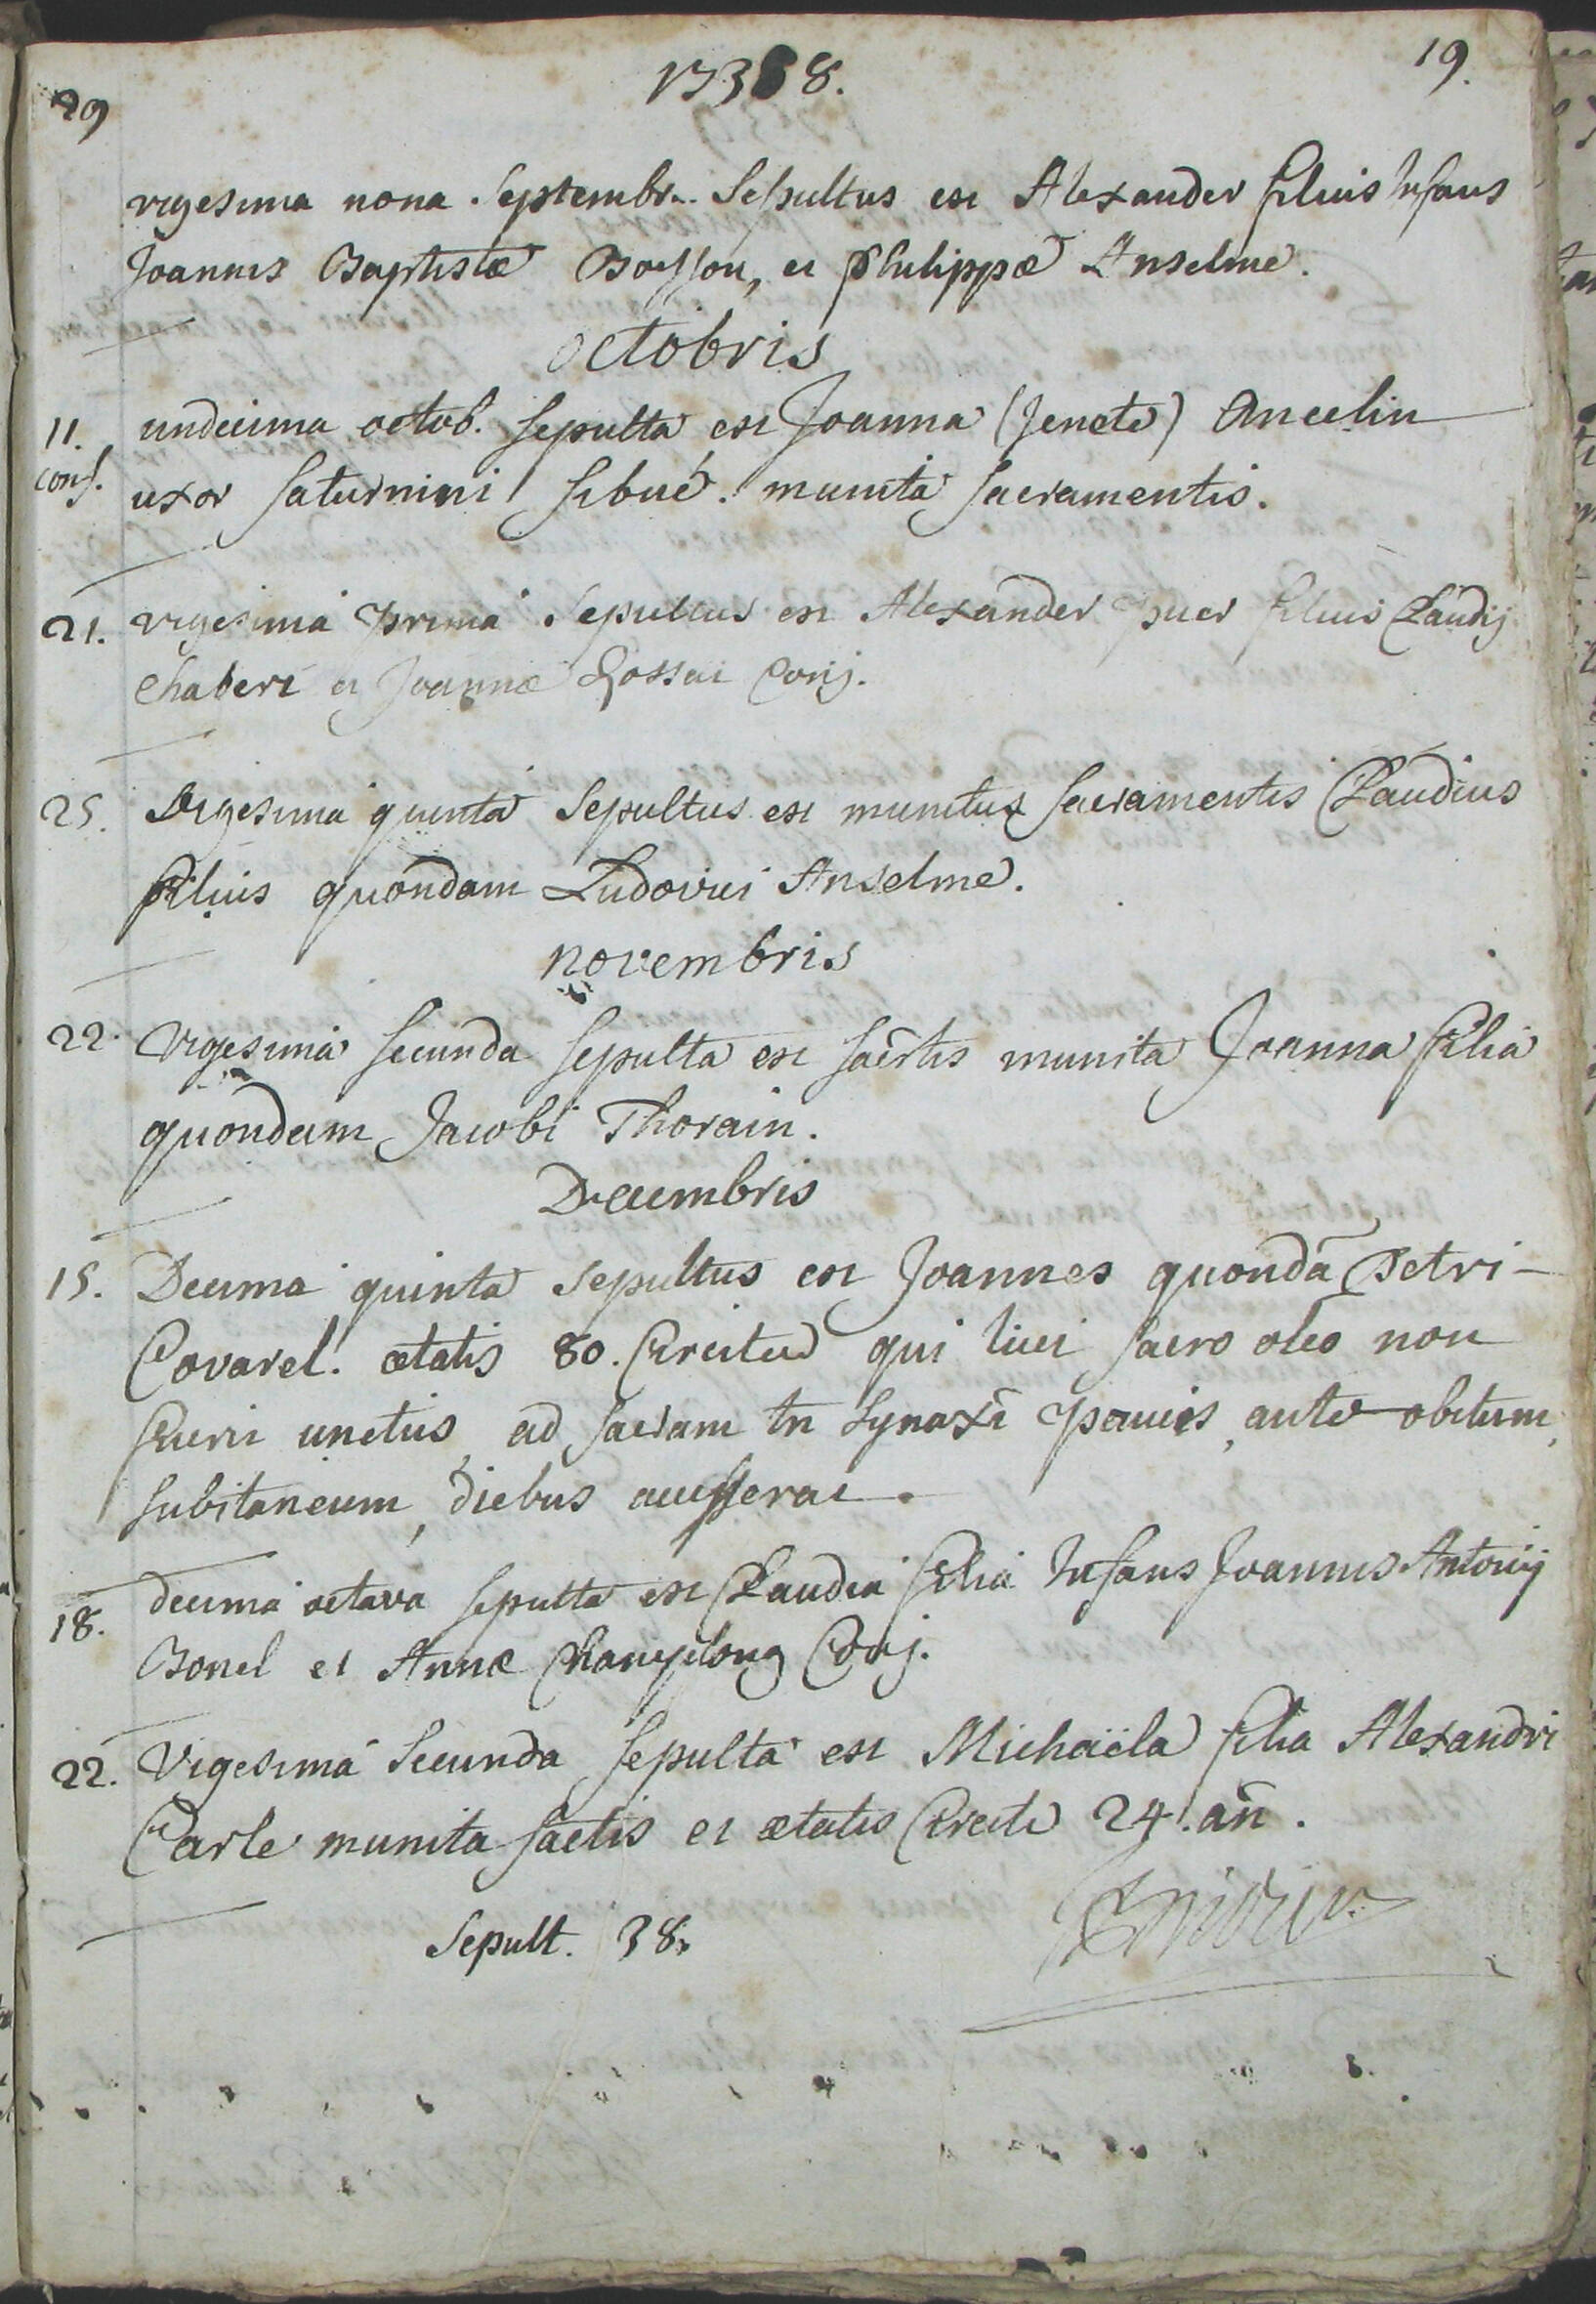 1738. 19.
29
vigesima nona Septembr. Sepultus est Alexander filius Infans
Joannis Baptistæ Boysson, et Philippæ Anselme.
octobris
11. undecima octob. sepulta est Joanna (Jenete) Ancelin
conj. uxor Saturnini Sibué. munita sacramentis.
21. vigesima prima Sepultus est Alexander puer filius Claudij
Chabert et Joannæ Gossat Conj.
25. Vigesima quinta Sepultus est munitus sacramentis Claudius
filius quondam Ludovici Anselme.
novembris
22. Vigesima secunda sepulta est sac̄rtis munita Joanna filia
quondam Jacobi Thorain.
Decembris
15. Decima quinta Sepultus est Joannes quondā Petri
Covarel. ætatis 80. Circiter qui licet sacro oleo non
fuerit unctus, ad sacram tn Synaxī paucis, ante obitum,
subitaneum, diebus accesserat.
18. decima octava sepulta est Claudia filia Infans Joannis Antonij
Bonel et Annæ Champlong Conj.
22. Vigesima Secunda sepulta est Michaëla filia Alexandri
Carle munita sactis et ætatis Circite 24. an̄.
Sepult. 38.